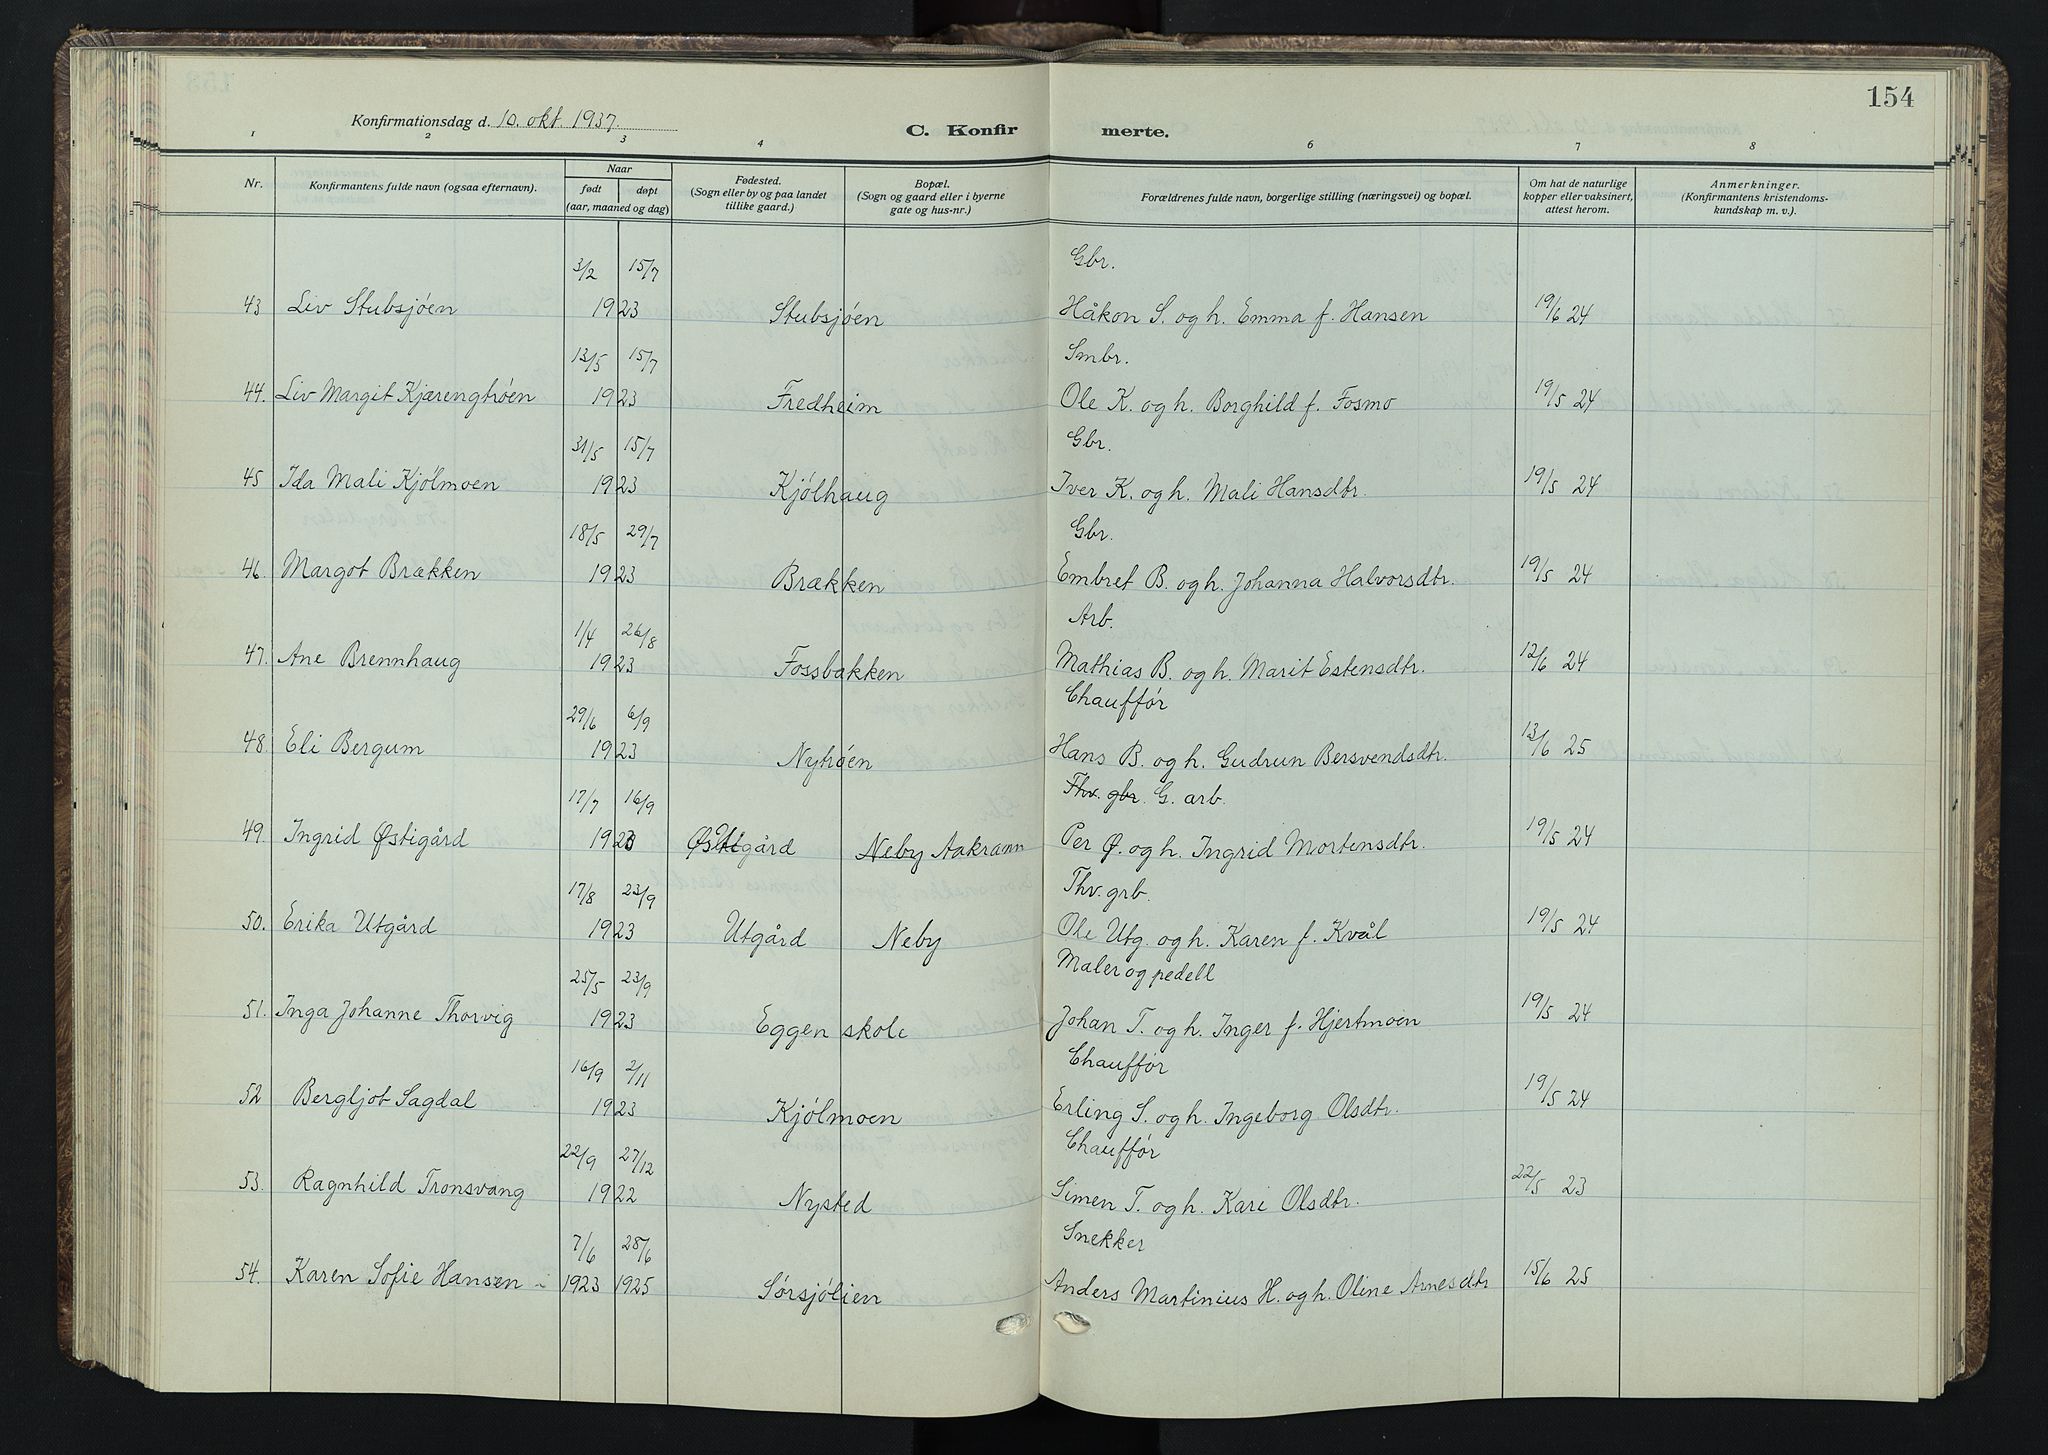 154
Konfirmationsdag d. 10. okt. 1937.
C. Konfirmerte.
1 2 3 4 6 7 8
Nr. Konfirmantens fulde navn (ogsaa efternavn). Naar født døpt (aar, maaned og dag) Fødested. (Sogn eller by og paa landet tillike gaard.) Bopæl. (Sogn og gaard eller i byerne gate og hus-nr.) Forældrenes fulde navn, borgerlige stilling (næringsvei) og bopæl. Om hat de naturlige kopper eller vaksinert, attest herom. Anmerkninger. (Konfirmantens kristendoms-kundskap m. v.).
3/2 15/7 Gbr.
43 Liv Stubsjøen 1923 Stubsjøen Håkon S. og h. Emma f. Hansen 19/6 24
13/5 15/7 Smbr.
44. Liv Margit Kjærengtrøen 1923 Fredheim Ole K. og h. Borghild f. Fosmo 19/5 24
31/5 15/7 Gbr.
45 Ida Mali Kjølmoen 1923 Kjølhaug Iver K. og h. Mali Hansdtr. 19/5 24
18/5 29/7 Gbr.
46. Margot Brækken 1923 Brækken Embret B. og h. Johanna Halvorsdtr. 19/5 24
1/4 26/8 Arb.
47. Ane Brennhaug 1923 Fossbakken Mathias B. og h. Marit Estensdtr. 12/6 24
29/6 6/9 Chauffør
48. Eli Bergum 1923 Nytrøen Hans B. og h. Gudrun Bersvendsdtr. 13/6 25
17/7 16/9 Thv. gbr. G. arb.
49 Ingrid Østigård 1923 Østigård Neby Aakrann Per Ø. og h. Ingrid Mortensdtr. 19/5 24
17/8 23/9 Thv. grb.
50. Erika Utgård 1923 Utgård Neby Ole Utg. og h. Karen f. Kvål 19/5 24
25/5 23/9 Maler og pedell
51. Inga Johanne Thorvig 1923 Eggen skole Johan T. og h. Inger f. Hjertmoen 19/5 24
16/9 2/11 Chauffør
52 Bergljot Sagdal 1923 Kjølmoen Erling S. og h. Ingeborg Olsdtr. 19/5 24
22/9 27/12 Chauffør
53. Ragnhild Tronsvang 1922 Nysted Simen T. og h. Kari Olsdtr. 22/5 23
7/6 28/6 Snekker
54. Karen Sofie Hansen 1923 1925 Sørsjølien Anders Martinius H. og h. Oline Arnesdtr 15/6 25